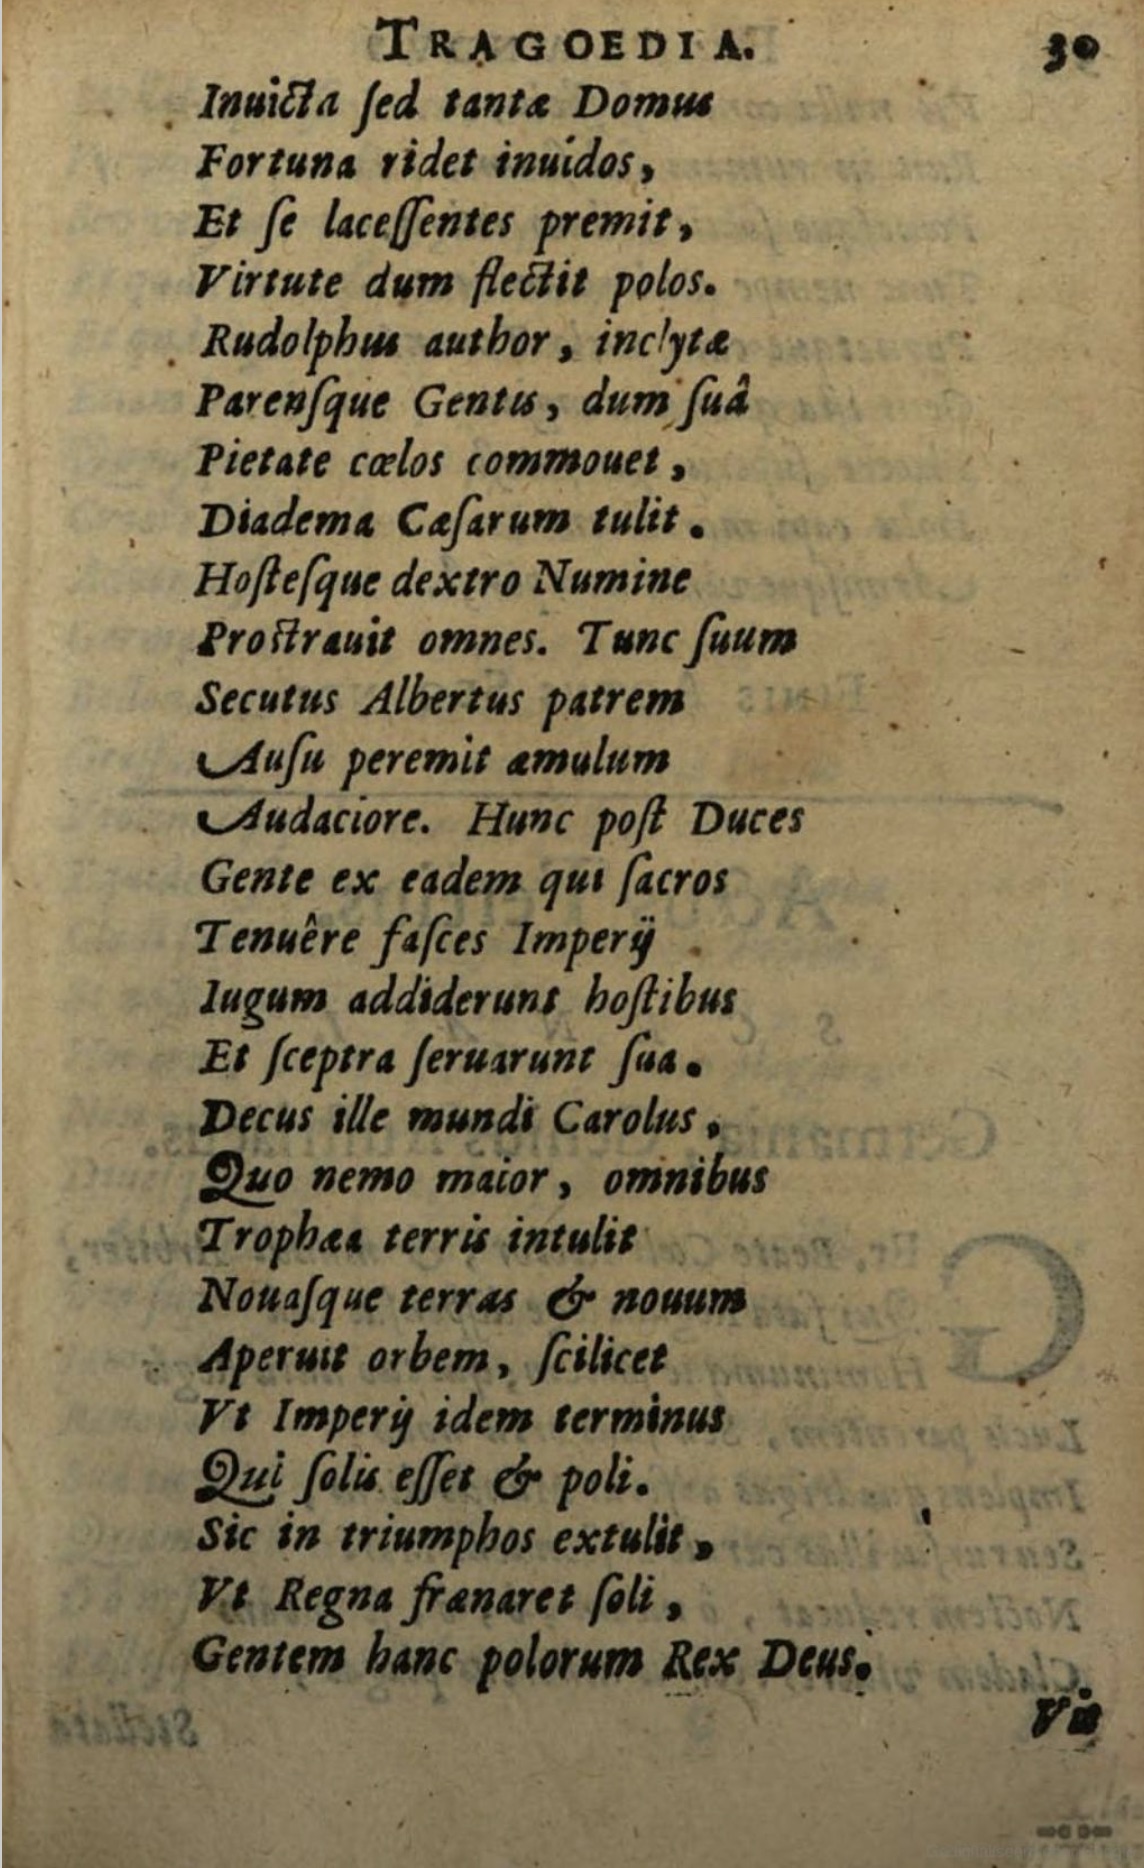 TRAGOEDIA. 30
Inuicta ſed tantæ Domus
Fortuna ridet inuidos,
Et ſe laceſſentes premit,
Virtute dum flectit polos.
Rudolphus author, inclytæ
Parenſque Gentis, dum ſuâ
Pietate cœlos commouet,
Diadema Cæſarum tulit.
Hoſteſque dextro Numine
Proſtrauit omnes. Tunc ſuum
Secutus Albertus patrem
Auſu peremit æmulum
Audaciore. Hunc poſt Duces
Gente ex eadem qui ſacros
Tenuêre faſces Imperij
Iugum addiderunt hoſtibus
Et ſceptra ſeruarunt ſua.
Decus ille mundi Carolus,
Quo nemo maior, omnibus
Trophæa terris intulit
Nouaſque terras & nouum
Aperuit orbem, ſcilicet
Vt Imperij idem terminus
Qui ſolis eſſet & poli.
Sic in triumphos extulit,
Vt Regna frænaret ſoli,
Gentem hanc polorum Rex Deus.